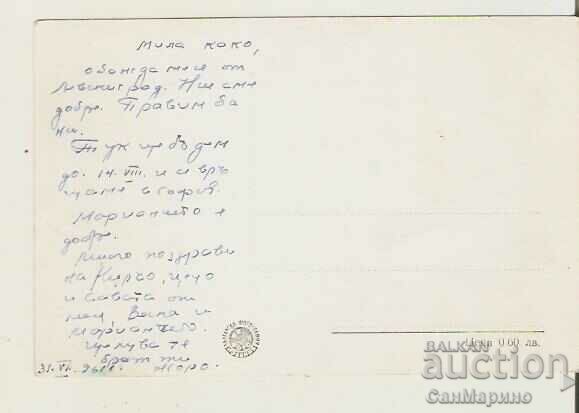 Мила како,
обажда ме се от
Ленинград. Ние сме
добре. Правим ба
ни.
Тук ще бъдем
до 14. VIII. и се връ
щаме в София.
Марианчето е
добре.
Много поздрави
на Кирчо,
и от
мен, и
Марианчето.
Целува те
брат ти
31. VII. Жоро.
Цена 0.60 лв.
BALKAN
auction
СанМарино